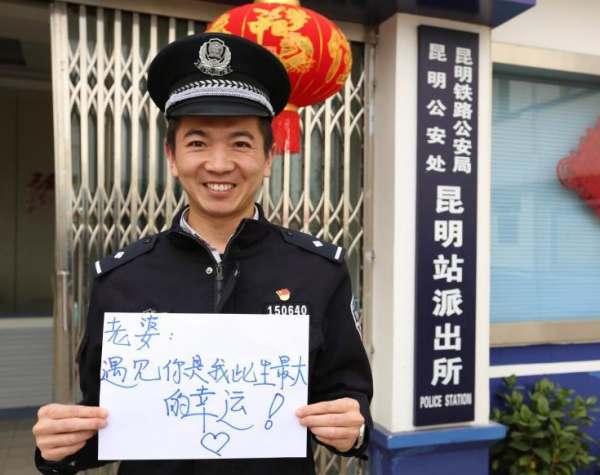 昆明铁路公安局
昆明公安处
昆明站派出所
POLICE STATION
150640
老婆：
遇见你是我此生最大
的幸运！